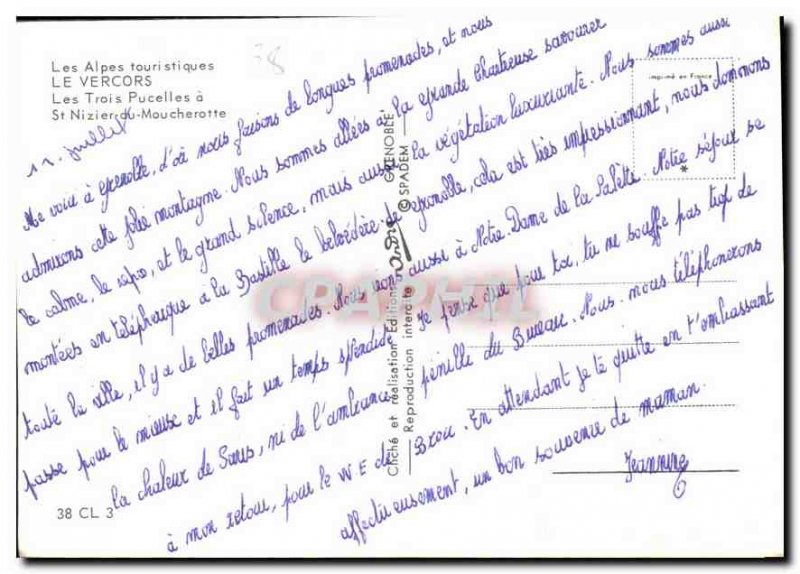 Les Alpes touristiques
LE VERCORS
Les Trois Pucelles à
St Nizier-du-Moucherotte
38
imprimé en France
11. juillet
Me voici à Grenoble, d'où nous faisons de longues promenades, et nous
admirons cette jolie montagne. Nous sommes allées à la grande Chartreuse savourer
le calme, le repos, et le grand silence, mais aussi la végétation luxuriante. Nous sommes aussi
montées en téléphérique à la Bastille le belvédère de Grenoble, cela est très impressionnant, nous dominons
toute la ville, il y a de belles promenades. Nous irons aussi à Notre Dame de La Salette. Notre séjour se
passe pour le mieux et il fait un temps splendide. Je pense que pour toi, tu ne souffre pas trop de
la chaleur de Paris, ni de l'ambiance pénible du Bureau. Nous nous téléphonerons
à mon retour, pour le W E de Broc. En attendant je te quitte en t'embrassant
affectueusement, un bon souvenir de maman.
Jeannine
Cliché et réalisation Editions André GRENOBLE
Reproduction interdite © SPADEM
CPAPHIL
38 CL 3